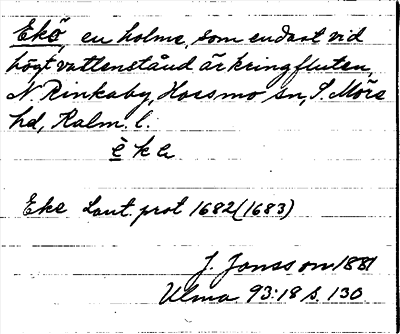 Ekö, en holme, som endast vid
högt vattenstånd är kringfluten,
N. Rinkaby, Hossmo sn, S. Möre
hd, Kalm. l.
è k e
Eke Lant. prot 1682 (1683)
J. Jonsson 1881
Ulma 93:18 s. 130